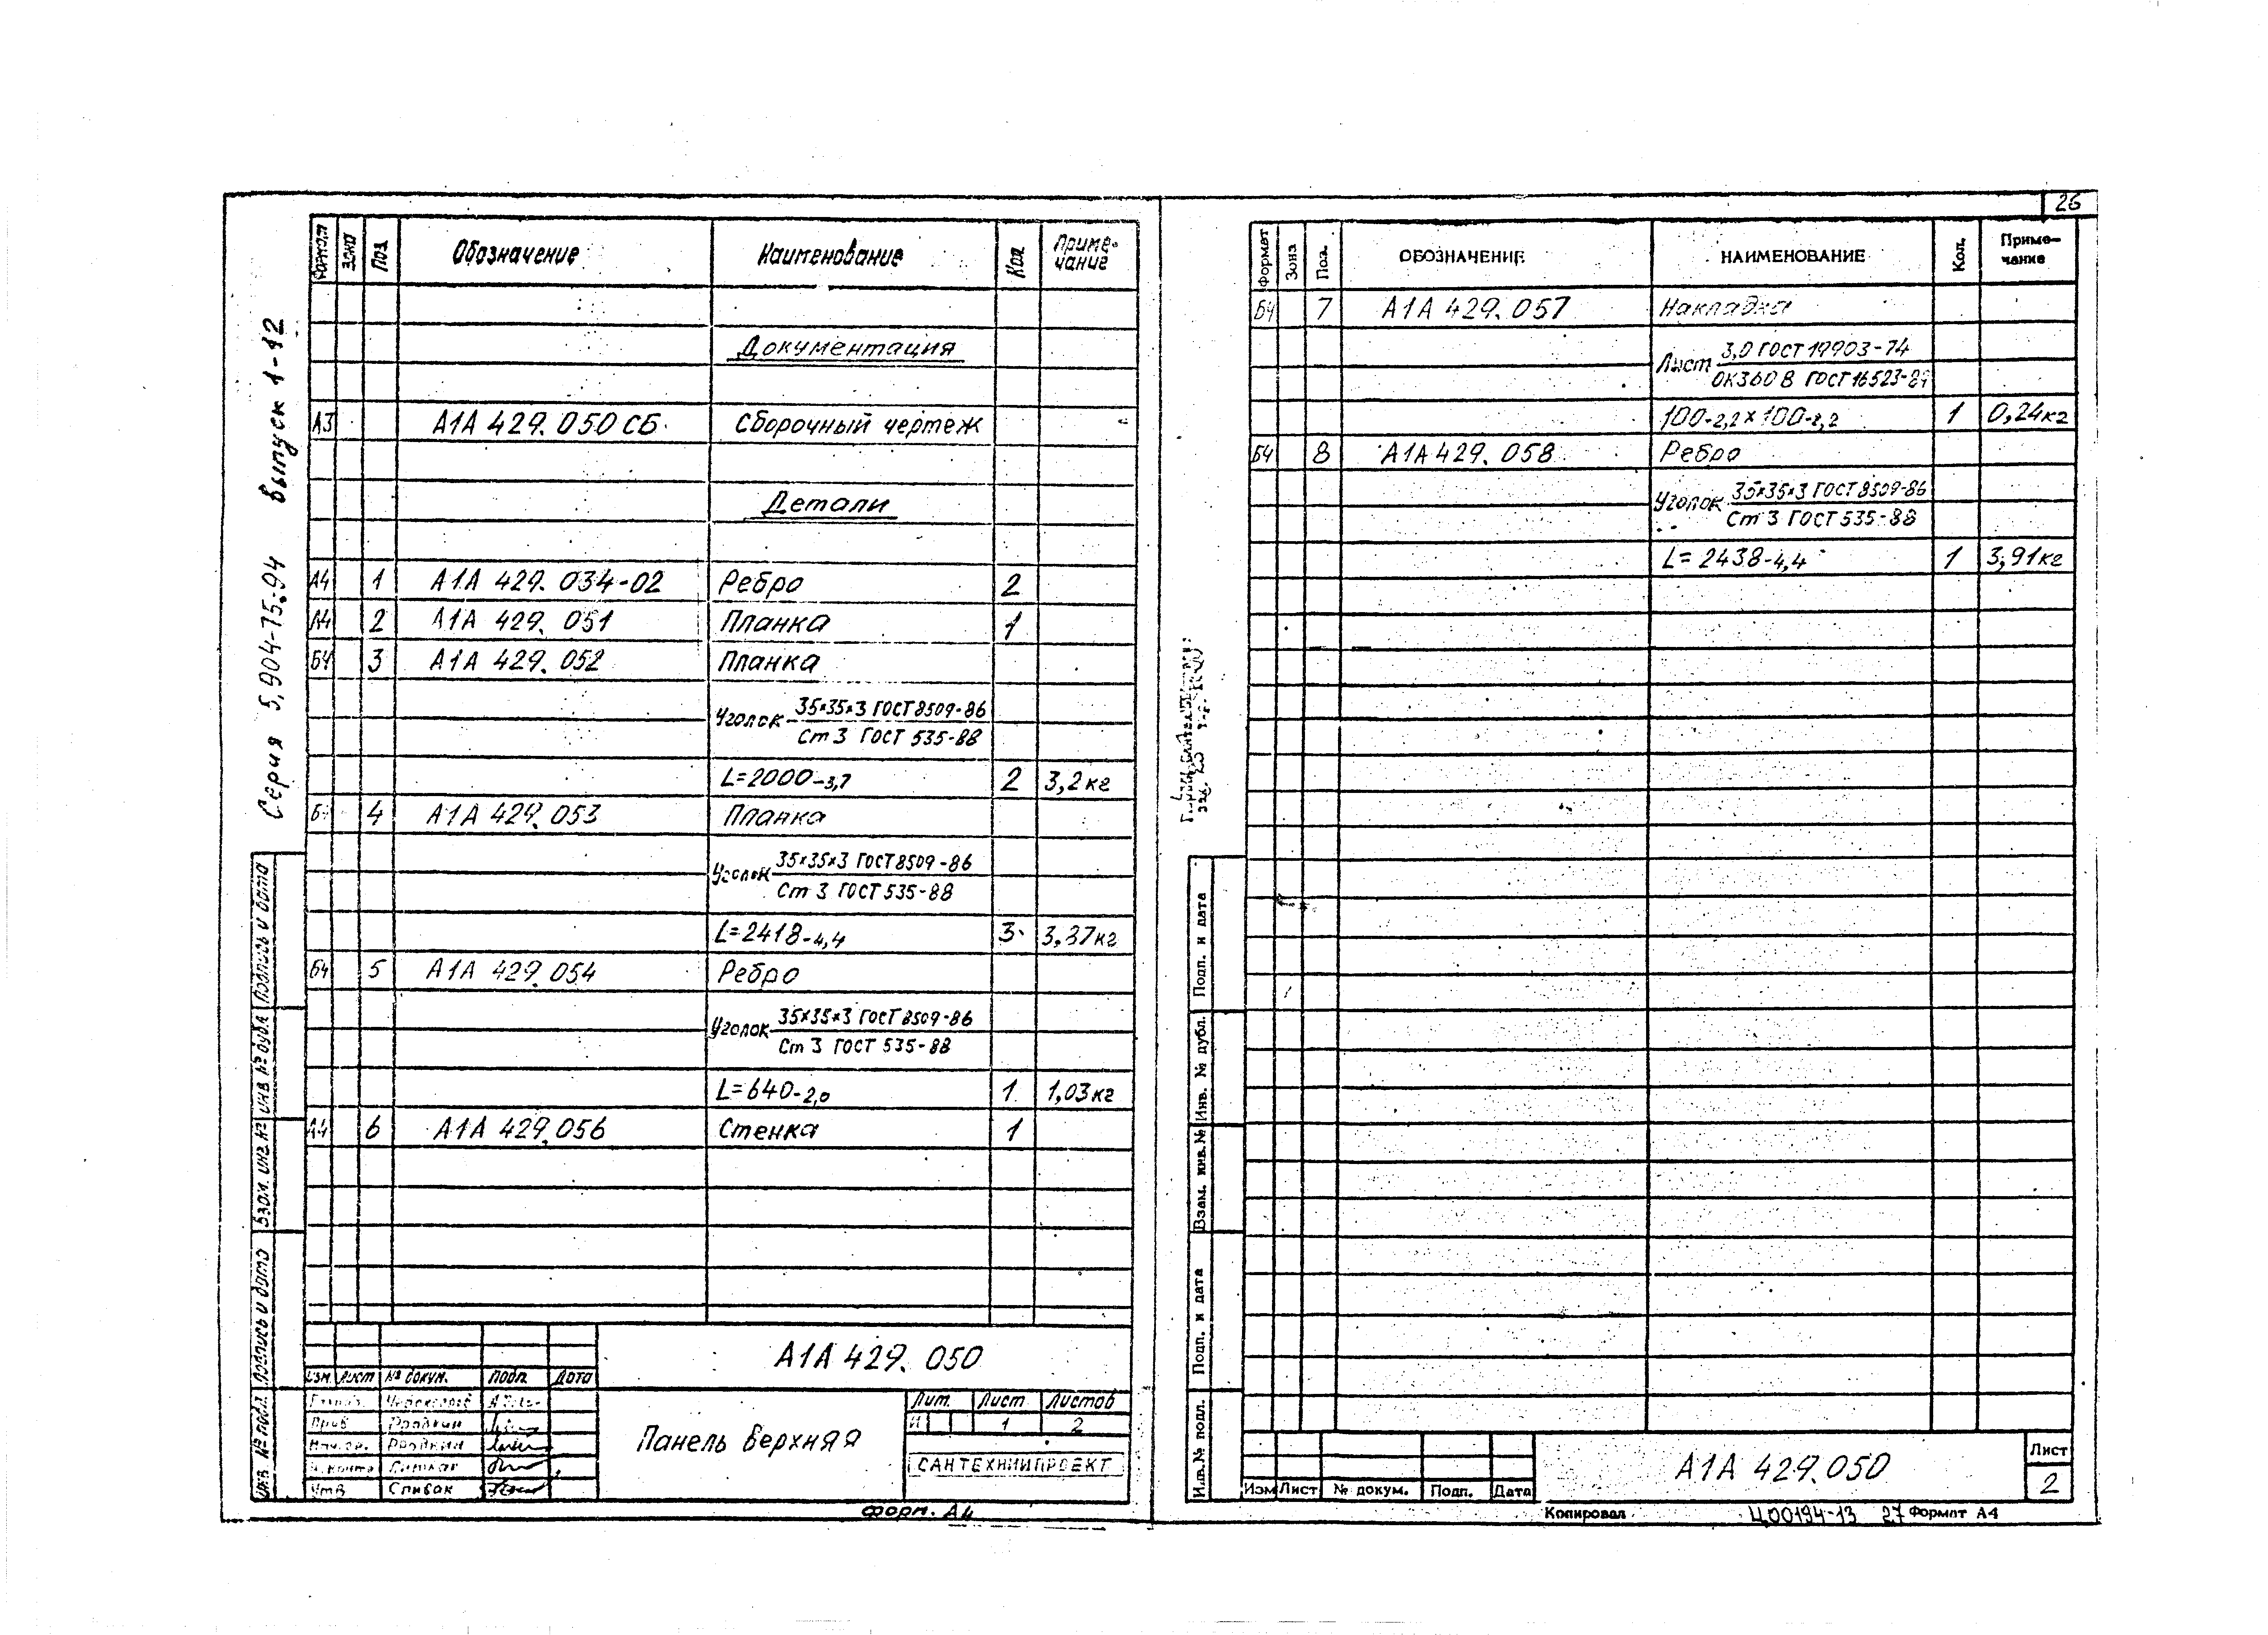 Серия 5.904-75.94 Выпуск 1-12
Формат Зона Поз. Обозначение Наименование Кол Приме-
чание
Документация
А3 А1А 429.050 СБ Сборочный чертеж
Детали
А4 1 А1А 429.034-02 Ребро 2
А4 2 А1А 429.051 Планка 1
БЧ 3 А1А 429.052 Планка
Уголок 35×35×3 ГОСТ 8509-86
Ст 3 ГОСТ 535-88
L=2000-3,7 2 3,2кг
БЧ 4 А1А 429.053 Планка
Уголок 35×35×3 ГОСТ 8509-86
Ст 3 ГОСТ 535-88
L=2418-4,4 3 3,87кг
БЧ 5 А1А 429.054 Ребро
Уголок 35×35×3 ГОСТ 8509-86
Ст 3 ГОСТ 535-88
L=640-2,0 1 1,03кг
А4 6 А1А 429.056 Стенка 1
Инв № подл. Подпись и дата Взам. инв № Инв № дубл Подпись и дата
А1А 429.050
Изм. Лист № докум. Подп. Дата
Пров Бродкин
Нач.гр. Бродкин
Н.контр
Утв Спивак
Панель верхняя
Лит. Лист Листов
И 1 2
САНТЕХНИИПРОЕКТ
Форм. А4
26
Формат Зона Поз. ОБОЗНАЧЕНИЕ НАИМЕНОВАНИЕ Кол. Приме-
чание
БЧ 7 А1А 429.057 Накладка
Лист 3,0 ГОСТ 19903-74
ОК360В ГОСТ 16523-89
100-2,2×100-2,2 1 0,24кг
БЧ 8 А1А 429.058 Ребро
Уголок 35×35×3 ГОСТ 8509-86
Ст 3 ГОСТ 535-88
L=2438-4,4 1 3,91кг
Инв.№ подл. Подп. и дата Взам. инв.№ Инв. № дубл. Подп. и дата
Изм Лист № докум. Подп. Дата
А1А 429.050
Лист
2
Копировал Ц00194-13 27 Формат А4